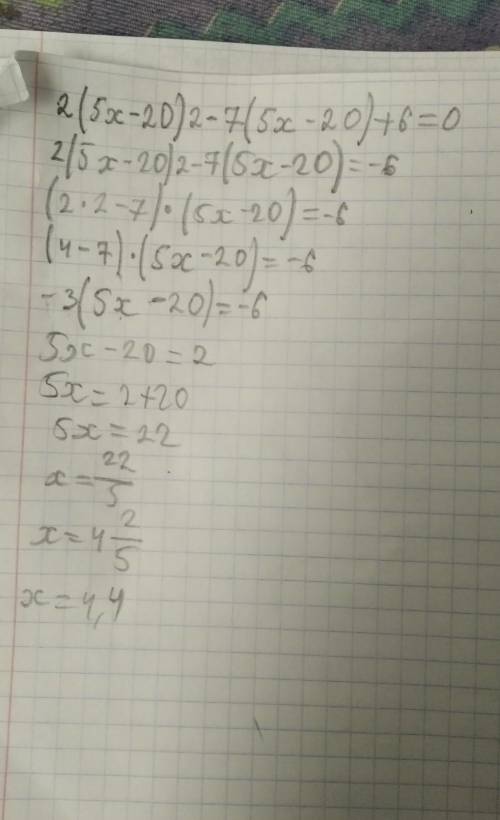 2(5x-20)2-7(5x-20)+6=0
2(5x-20)2-7(5x-20)=-6
(2·2-7)·(5x-20)=-6
(4-7)·(5x-20)=-6
-3(5x-20)=-6
5x-20=2
5x=2+20
5x=22
x=22/5
x=4 2/5
x=4,4